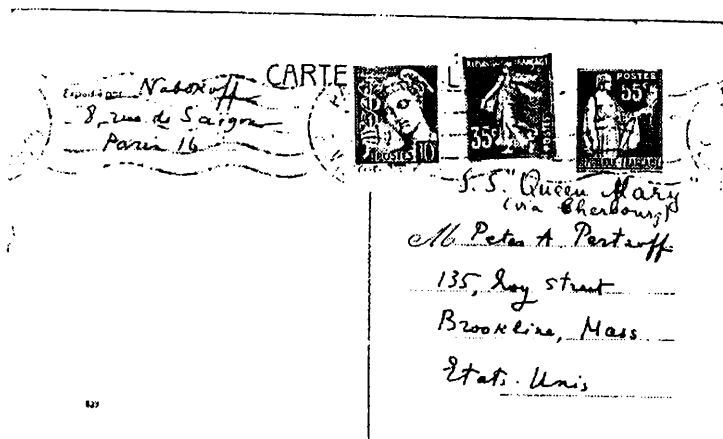 CARTE
Expédié par Nabokoff
8, rue de Saigon
Paris 16
POSTES 10
REPUBLIQUE FRANÇAISE
35c
POSTES
POSTES
55c
REPUBLIQUE FRANÇAISE
S.S. "Queen Mary"
(via Cherbourg)
M Peter A Pertzoff
135, Ivy street
Brookline, Mass
Etats-Unis